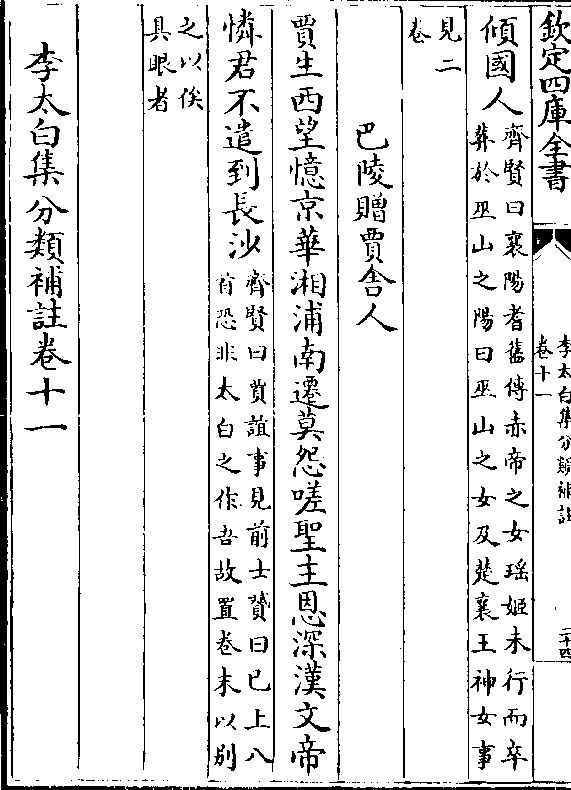 欽定四庫全書
李太白集分類補註
卷十一
二十四
傾國人
齊賢曰襄陽耆舊傳赤帝之女瑤姬未行而卒
葬於巫山之陽曰巫山之女及楚襄王神女事
見二
卷
巴陵贈賈舍人
賈生西望憶京華湘浦南遷莫怨嗟聖主恩深漢文帝
憐君不遣到長沙
齊賢曰賈誼事見前士贇曰已上八
首恐非太白之作吾故置卷末以别
之以俟
具眼者
李太白集分類補註卷十一